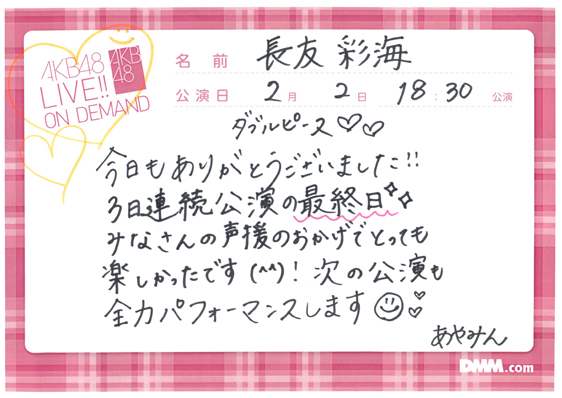 AKB48
LIVE!!
ON DEMAND
AKB
48
名前 長友 彩海
公演日 2月 2日 18:30 公演
ダブルピース♡♡
今日もありがとうございました!!
3日連続公演の最終日
みなさんの声援のおかげでとっても
楽しかったです(^^)! 次の公演も
全力パフォーマンスします
あやみん
DMM.com